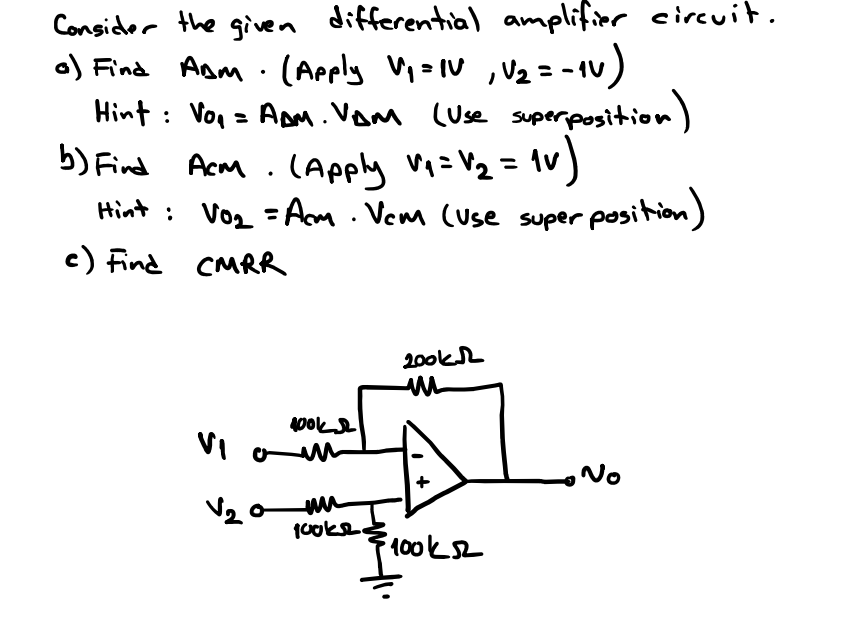 Consider the given differential amplifier circuit.
a) Find ADM . (Apply V1 = 1V , V2 = -1V)
Hint : VO1 = ADM . VDM (Use superposition)
b) Find Acm . (Apply V1 = V2 = 1V)
Hint : VO2 = Acm . Vcm (Use superposition)
c) Find CMRR
200kΩ
100kΩ
V1
-
+
Vo
V2
100kΩ
100kΩ